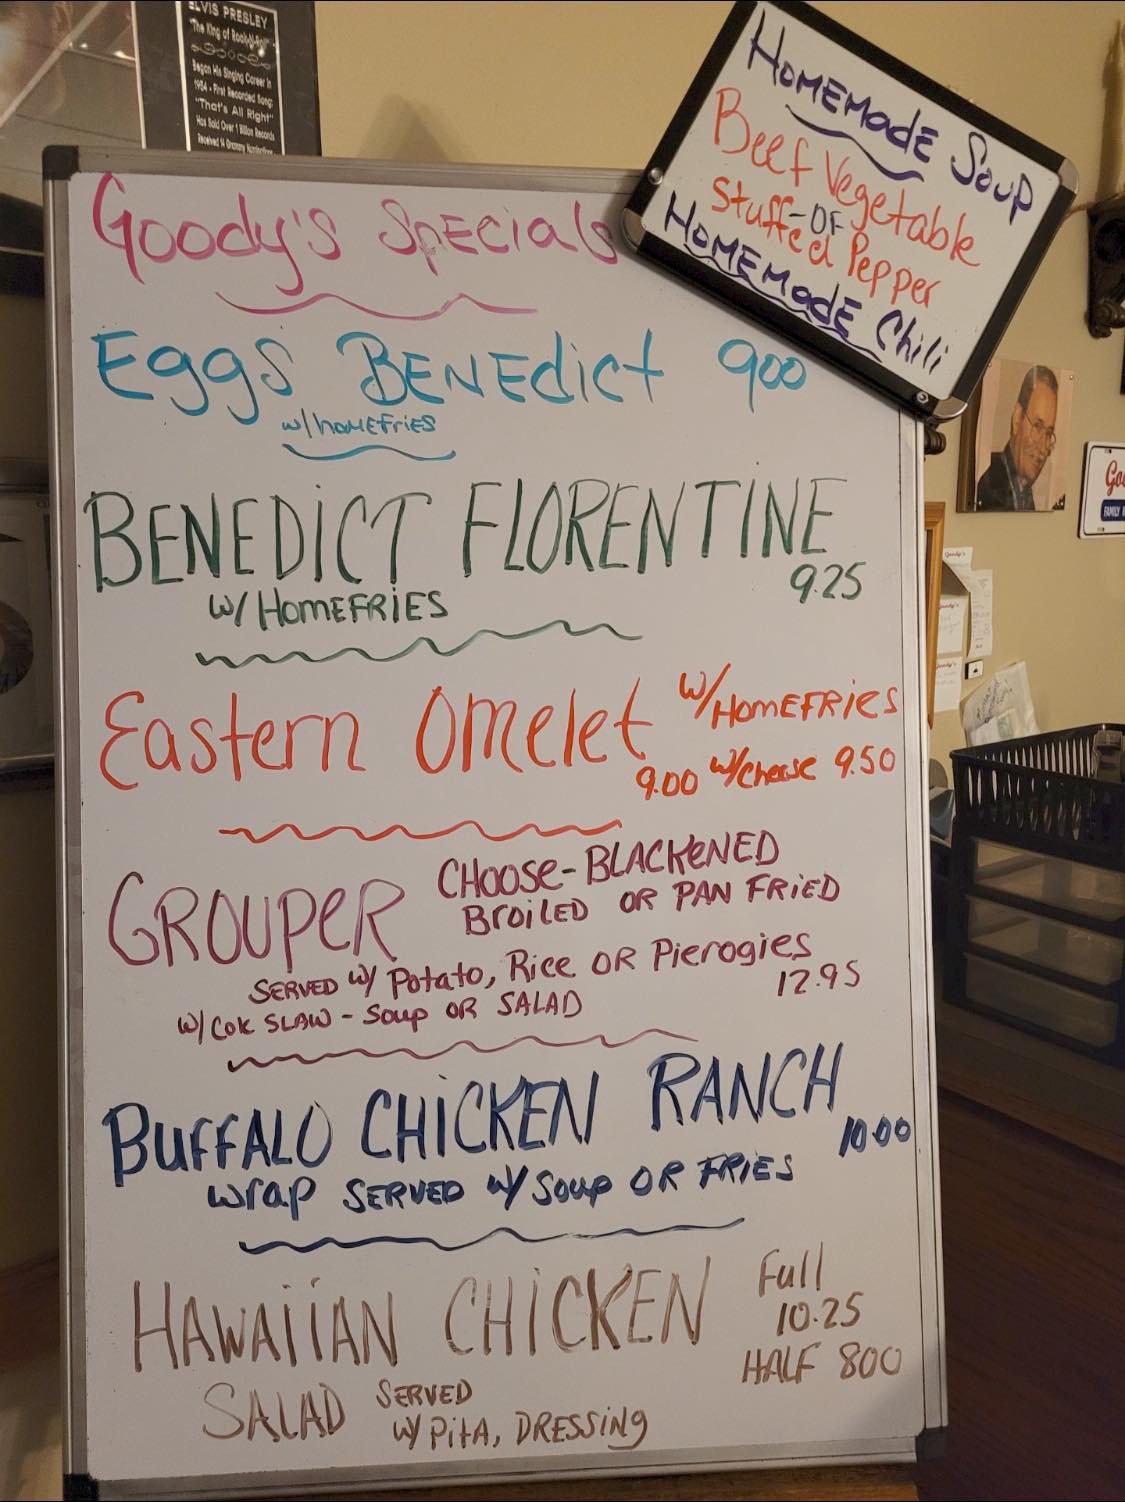 ELVIS PRESLEY
"The King of Rock-N-Roll"
Began His Singing Career in
1954 - First Recorded Song:
"That's All Right"
Has Sold Over 1 Billion Records
Received 14 Grammy Nominations
HOMEMADE SOUP
Beef Vegetable
-OR-
Stuffed Pepper
HOMEMADE Chili
Goody's Specials
Eggs BENEdict 900
w/homefries
BENEDICT FLORENTINE
9.25
w/HOMEFRIES
Eastern Omelet w/HOMEFRIES
9.00 w/Cheese 9.50
GROUPER CHOOSE-BLACKENED
BROILED OR PAN FRIED
SERVED w/ Potato, Rice OR Pierogies
12.95
w/Cole SLAW - Soup OR SALAD
BUFFALO CHICKEN RANCH
10.00
wrap SERVED w/ Soup OR FRIES
HAWAIIAN CHICKEN Full
10.25
HALF 800
SALAD SERVED
w/ PitA, DRESSING
Goo
FAMILY